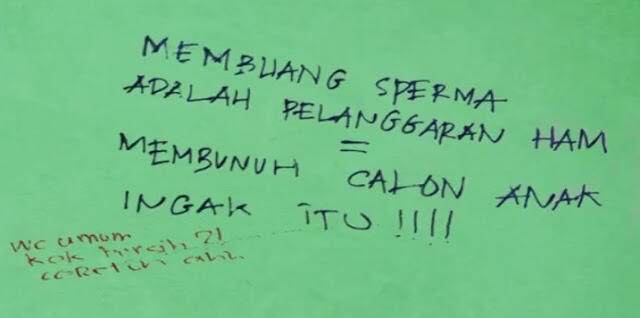 MEMBUANG SPERMA
ADALAH PELANGGARAN HAM
=
MEMBUNUH CALON ANAK
INGAK ITU !!!!
WC umum
kok bersih ?!
coretin ahh